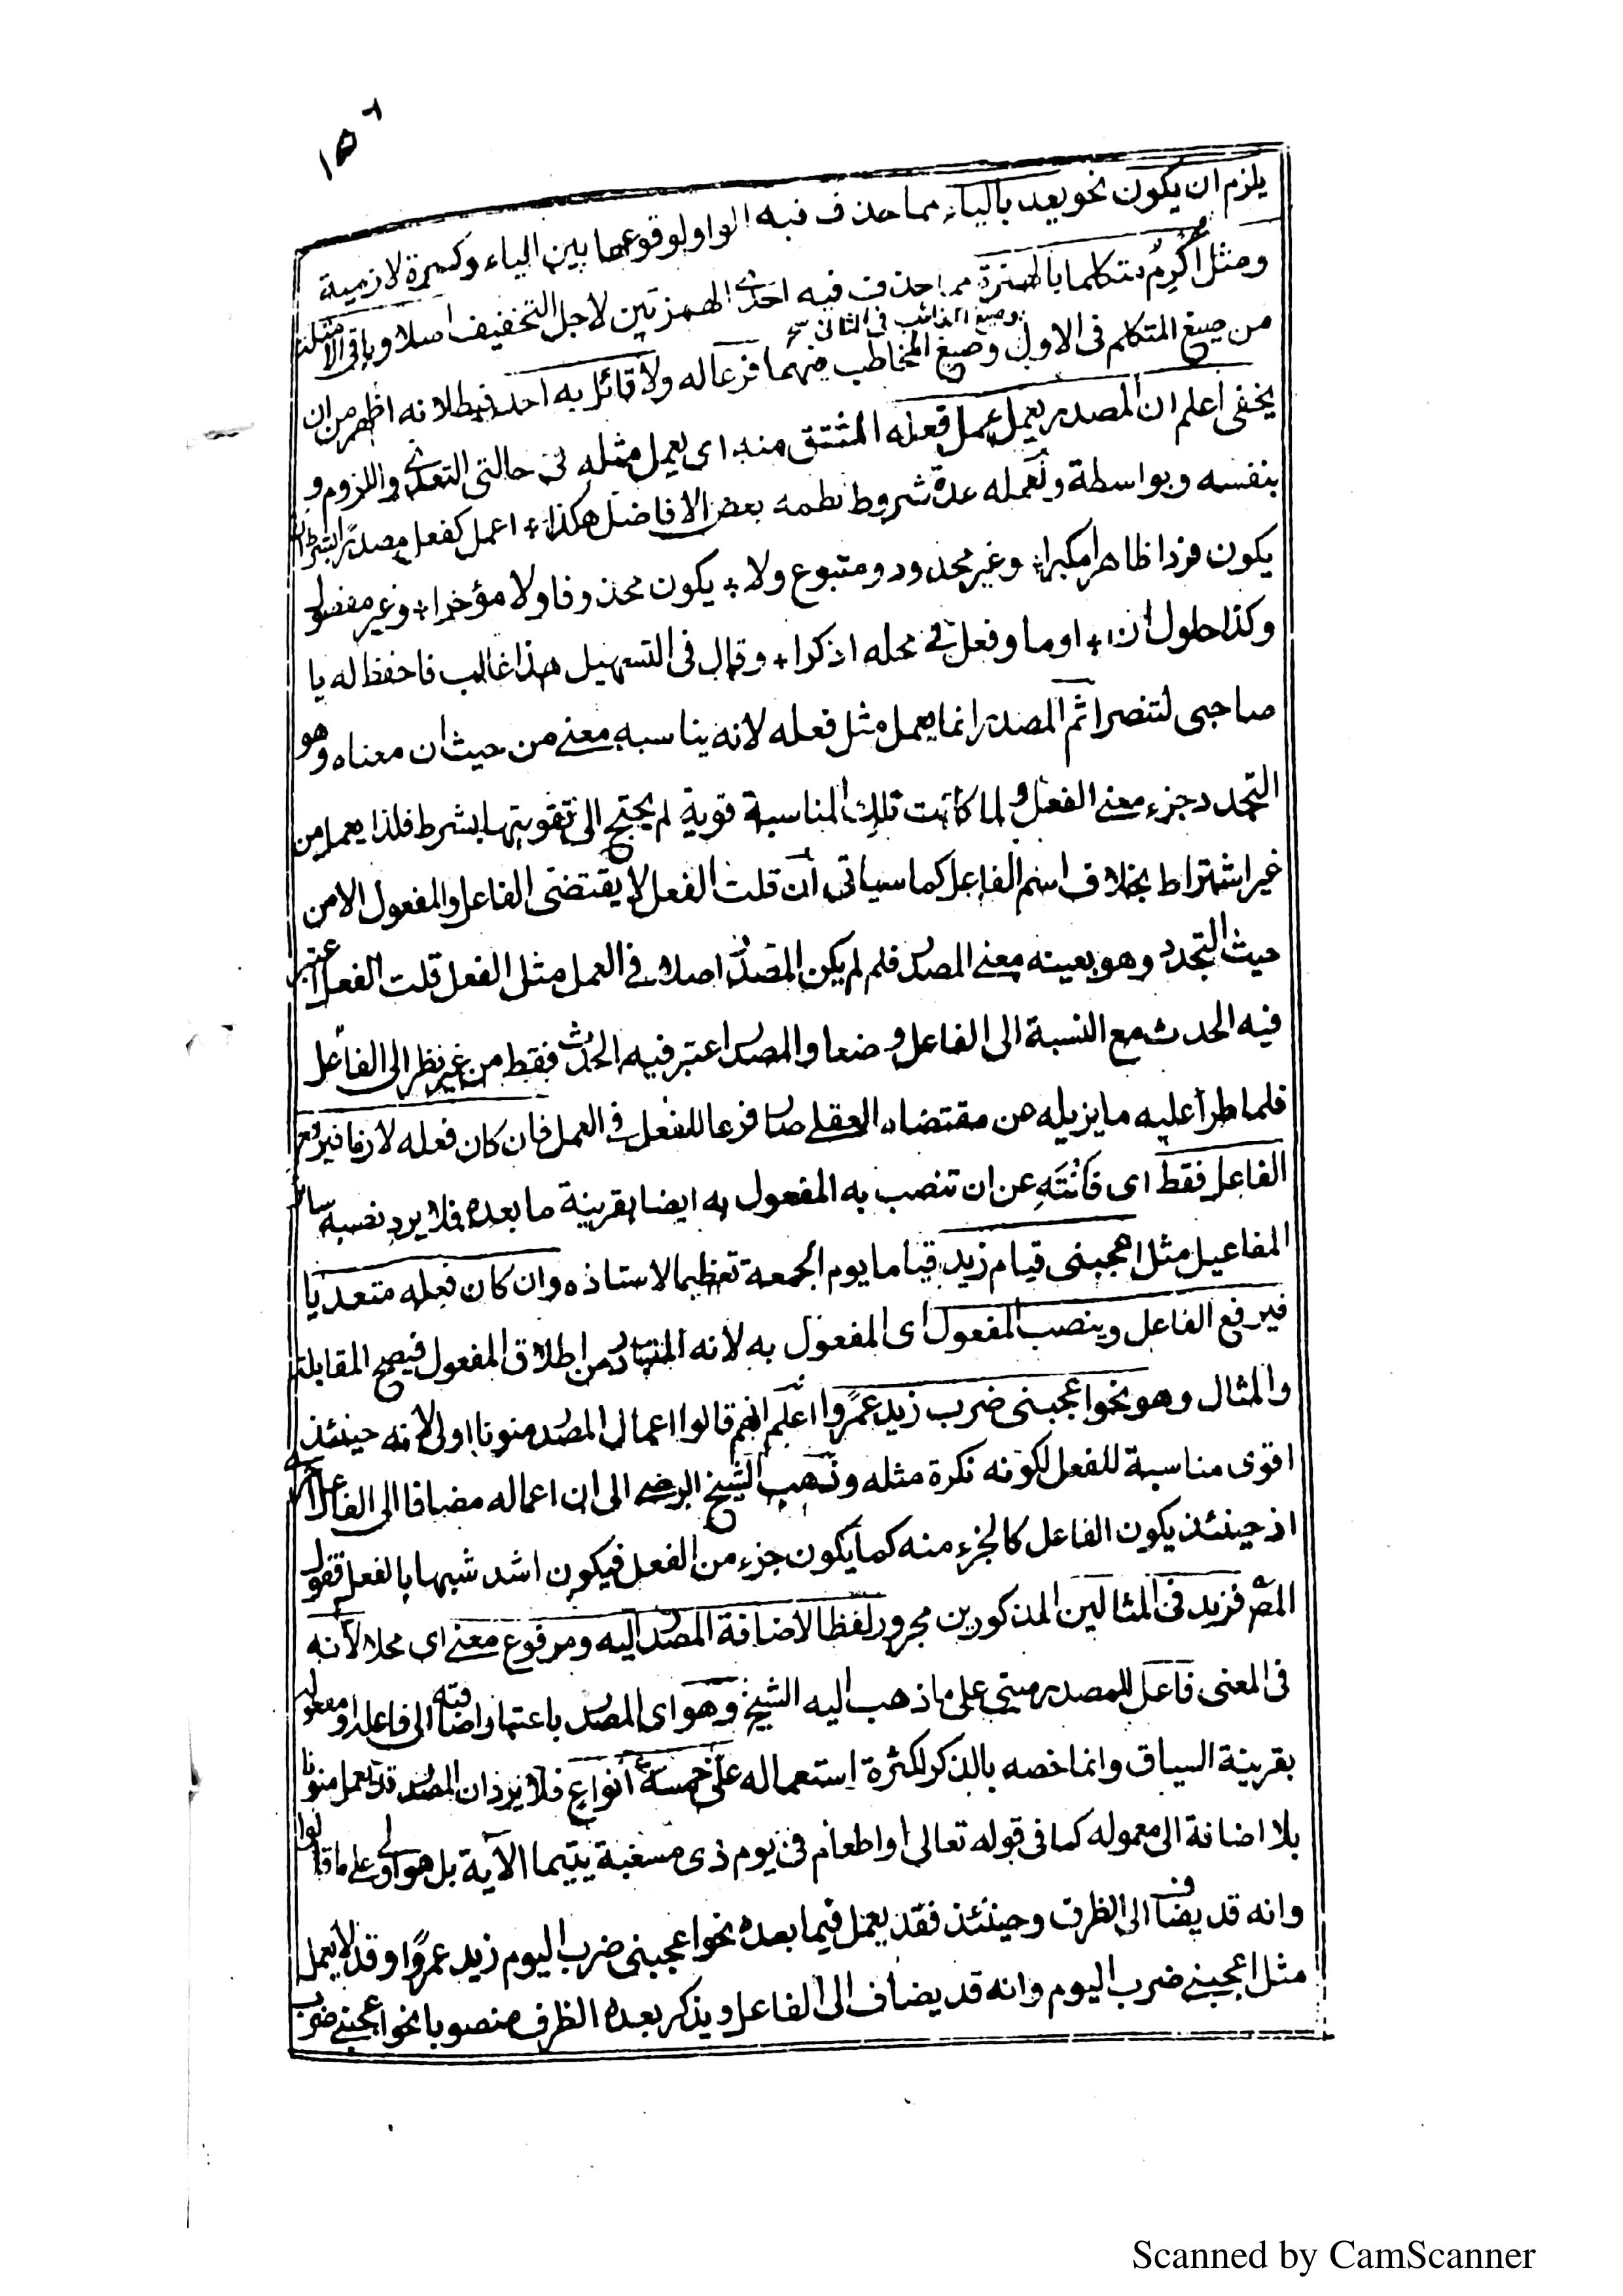 ١٥٦
يلزم ان يكون نحو يعد بالياء مما حذف فيه الواو لوقوعها بين الياء وكسرة لازمية
ومثل أُكْرِمُ متكلما بالهمزة مما حذف فيه احدى الهمزتين لاجل التخفيف اصلا وباقى الامثلة
وصيغ الغائب فى الثانى
من صيغ المتكلم فى الاول وصيغ المخاطب منهما فرعا له ولا قائل به احد فبطلانه اظهر من ان
يخفى اعلم ان المصدر يعمل عمل فعله المشتق منه اى يعمل مثله فى حالتى التعدى واللزوم و
بنفسه وبواسطة ولعمله عدة شروط نظمه بعض الافاضل هكذا + اعمل كفعل مصدرا بشرط ان
يكون فردا ظاهرا مكبرا + وغير محدود ومتبوع ولا + يكون محذوفا ولا مؤخرا + وغير مفصول
وكذا حلول ان + او ما وفعل فى محله اذكرا + وقال فى التسهيل هذا غالب فاحفظ له يا
صاحبى لتنصرا ثم المصدر انما يعمل مثل فعله لانه يناسبه معنے من حيث ان معناه وهو
التجدد جزء معنے الفعل ولما كانت تلك المناسبة قوية لم يحتج الى تقويتها بشرط فلذا يعمل من
غير اشتراط بخلاف اسم الفاعل كما سياتى ان قلت الفعل لا يقتضى الفاعل والمفعول الا من
حيث التجدد وهو بعينه معنے المصدر فلم لم يكن المصدر اصلا فى العمل مثل الفعل قلت الفعل اعتبر
فيه الحدث مع النسبة الى الفاعل وضعا والمصدر اعتبر فيه الحدث فقط من غير نظر الى الفاعل
فلما طرأ عليه ما يزيله عن مقتضاه العقلے صار فرعا للفعل فى العمل فان كان فعله لازما فيرفع
الفاعل فقط اى فَانْتَهِ عن ان تنصب به المفعول به ايضا بقرينة ما بعده فلا يرد نصبه سائر
المفاعيل مثل اعجبنى قيام زيد قياما يوم الجمعة تعظيما لاستاذه وان كان فعله متعديا
فيرفع الفاعل وينصب المفعول اى المفعول به لانه المتبادر من اطلاق المفعول فيصح المقابلة
والمثال وهو نحو اعجبنى ضرب زيد عمرًوا اعلم انهم قالوا اعمال المصدر منونا اولى لانه حينئذ
اقوى مناسبة للفعل لكونه نكرة مثله وذهب الشيخ الرضے الى ان اعماله مضافا الى الفاعل
اذ حينئذ يكون الفاعل كالجزء منه كما يكون جزء من الفعل فيكون اشد شبها بالفعل فقول
المص فزيد فى المثالين المذكورين مجرور لفظا لاضافة المصدر اليه ومرفوع معنے اى محلا لانه
فى المعنى فاعل للمصدر مبتى على ما ذهب اليه الشيخ وهو اى المصدر باعتبار اضافته الى فاعله او مفعوله
بقرينة السياق وانما خصه بالذكر لكثرة استعماله على خمسة انواع فلا يرد ان المصدر قد يعمل منونا
بلا اضافة الى معموله كما فى قوله تعالى او اطعام فى يوم ذى مسغبة يتيما الآية بل هو اولى على ما قالوا
وانه قد يضاف الى الظرف وحينئذ فقد يعمل فيما بعده نحو اعجبنى ضرب اليوم زيد عمرًوا وقد لا يعمل
مثل اعجبنے ضرب اليوم وانه قد يضاف الى الفاعل ويذكر بعده الظرف منصوبا نحو اعجبنے ضرب
Scanned by CamScanner